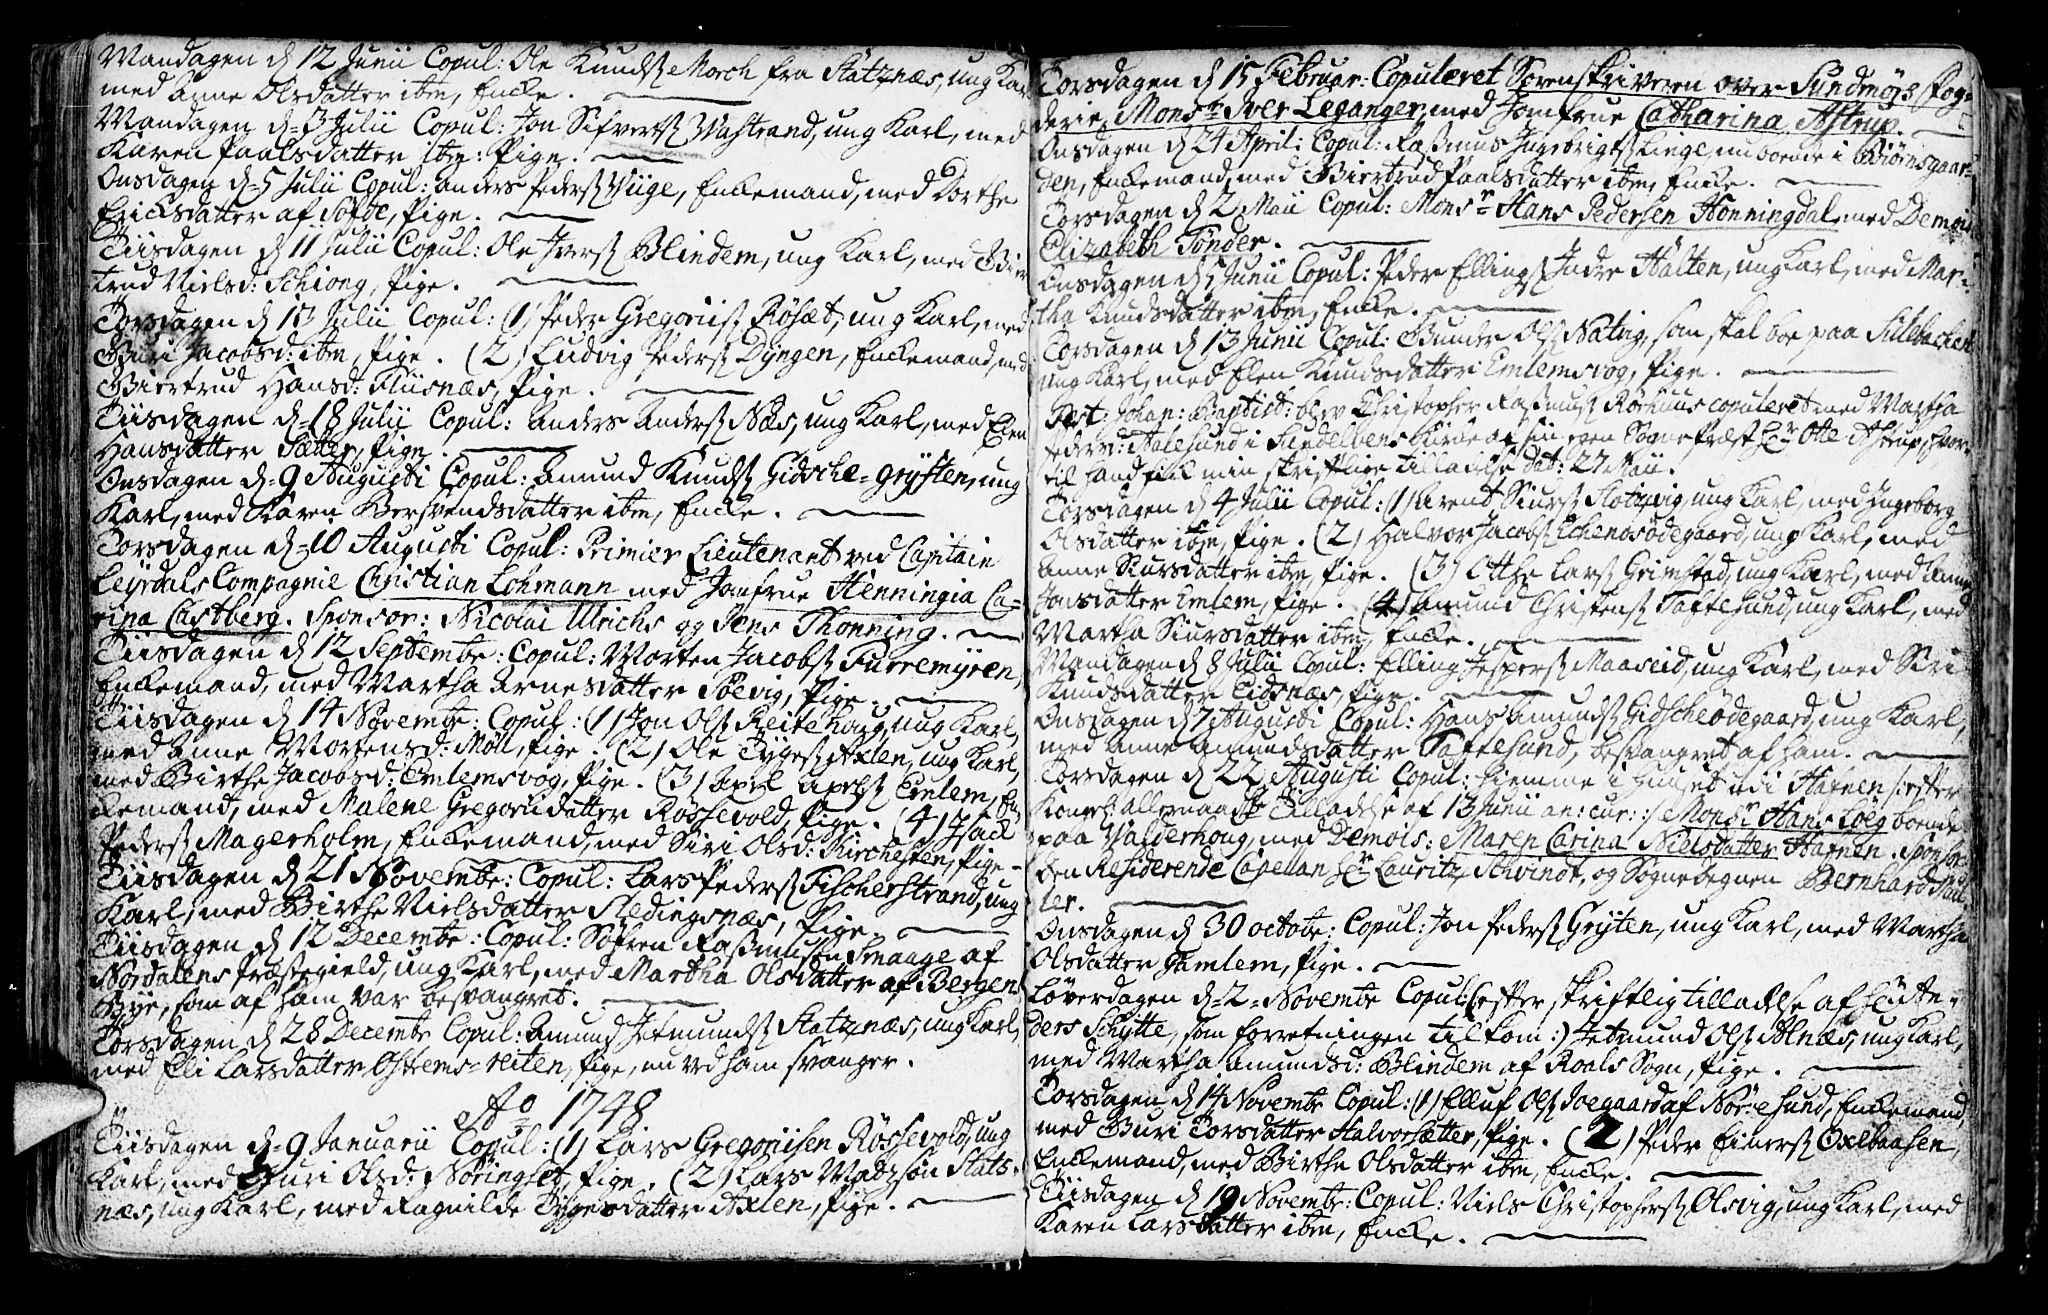 Mandagen d 12 Junii Copul: Ole Knuds Morch fra Slatznæs, ung Karl
med Anne Olsdatter ibm, Encke.
Mandagen d. 3 Julii Copul: Jon Sifverts Wastrand, ung Karl, med
Karen Paalsdatter ibm: Pige.
Onsdagen d. 5 Julii Copul: Anders Peders Viige, Enckemand, med Dorthe
Ericksdatter af Søfde, Pige.
Tiisdagen d 11 Julii Copul: Ole Ivers Blindem, ung Karl, med Gier
trud Nielsd: Schiong, Pige.
Torsdagen d 13 Julii Copul: (1) Peder Gregoriis Røhsæt, ung Karl, med
Guri Jacobsd: ibm, Pige. (2) Ludvig Peders Dyngen, Enckemand, med
Giertrud Hansd: Fliisnæs, Pige.
Tiisdagen d. 18 Julii Copul: Anders Anders Næs, ung Karl, med Elen
Hansdatter Sætter, Pige.
Onsdagen d. 9 Augusti Copul: Amund Knuds Gidsche-grysten, ung
Karl, med Karen Bersvendsdatter ibm, Encke.
Torsdagen d. 10 Augusti Copul: Primier Lieutenant ved Capitain
Leyrdals Compagnie Christian Lohmann med Jomfrue Henningia Ca-
rina Castberg. Sponsor: Nicolai Ulrichs og Jens Thonning.
Tiisdagen d 12 Septembr: Copul: Morten Jacobs Furremyren,
Enckemand, med Martha Arnesdatter Soevig, Pige.
Tiisdagen d 14 Novembr: Copul: (1) Jon Ols Reitehoug, ung Karl,
med Anne Mortensd: Møll, Pige. (2) Ole Tyges Axlen, ung Karl,
med Birthe Jacobsd: Emlemsvog, Pige. (3) Axel Axels Emlem, En-
ckemand, med Malene Gregoriidatter Røssevold, Pige. (4) Isack
Peders Magerholm, Enckemand, med Siri Olsd: Kirchesten, Pige.
Tiisdagen d 21 Novembr: Copul: Lars Peders Fischerstrand, ung
Karl, med Birthe Nielsdatter Fledingsnæs, Pige.
Tiisdagen d 12 Decembr: Copul: Søfren Rasmusen Smaage af
Nordalens Præstegield, ung Karl, med Martha Olsdatter af Bergens
Bye, som af ham var besvangret.
Torsdagen d 28 Decembr Copul: Amund Jetmunds Slatznæs, ung Karl,
med Eli Larsdatter Ostrems-reiten, Pige, nu ved ham svanger.
Ao 1748
Tiisdagen d. 9 Januarii Copul: (1) Lars Gregoriisen Røssevold, ung
Karl, med Guri Olsd: Nøringset, Pige. (2) Lars Madzsøn Slats-
næs, ung Karl, med Ragnilde Tygesdatter Axlen, Pige.
Torsdagen d 15 Februar: Copuleret Sorenskriveren over Sundmørs fog-
derie, Monsr Iver Leganger, med Jomfrue Catharina Astrup.
Onsdagen d 24 April: Copul: Rasmus Ingebrigts Linge, nu boende i Biørnsgaar-
den, Enckemand, med Giertrud Paalsdatter ibm, Encke.
Torsdagen d 2 Maii Copul: Monsr Hans Pedersen Honningdal med Demois
Elizabeth Tønder.
Onsdagen d 5 Junii Copul: Peder Ellings Indre Halten, ung Karl, med Mar-
tha Knudsdatter ibm, Encke.
Torsdagen d 13 Junii Copul: Gunder Ols Natvig, som skal boe paa Sillebachen
ung Karl, med Elen Knudsdatter Emlemsvog, Pige.
Fest: Johan: Baptist: blev Christopher Rasmus Rørhuus copuleret med Martha
Pedersd: Aalesund i Sindelvens Kirke af sin egen Sognepræst Hr Otte Astrup, hvor-
til hand fick min skriftlige tilladelse dat: 27 Maii.
Torsdagen d 4 Julii Copul: (1) Arent Siurs Flotzvig, ung Karl, med Ingeborg
Olsdatter ibm, Pige. (2) Halvor Jacobs Echenosødegaard, ung Karl, med
Anne Siursdatter ibm, Pige. (3) Otthe Lars Grimstad, ung Karl, med Anne
Jonsdatter Emlem, Pige. (4) Amund Christens Taftesund, ung Karl, med
Martha Siursdatter ibm, Encke.
Mandagen d 8 Julii Copul: Elling Jespers Maaseid, ung Karl, med Siri
Knudsdatter Eidsnæs, Pige.
Onsdagen d 7 Augusti Copul: Hans Amunds Gidscheødegaard, ung Karl,
med Anne Amundsdatter Taftesund, besvangret af ham.
Torsdagen d 22 Augusti Copul: hiemme i Huuset udi Hafnen /: efter
Kongel: allernaadste Tilladelse af 13 Junii an: cur: :/ Monsr Hans Løeg boende
paa Valderhoug, med Demois: Maren Carina Nielsdatter Hafnen. Sponsor:
den Residerende Capellan Hr Lauritz Schvindt, og Sognedegnen Bernhard
ler.
Onsdagen d 30 octobr: Copul: Jon Peders Gryten, ung Karl, med Martha
Olsdatter Gamlem, Pige.
Løverdagen d. 2. Novembr Copul: (: efter skriftlig tilladelse af Lieute-
ders Schytte, som forretningen tilkom :) Jetmund Ols Alnæs, ung Karl,
med Martha Amundsd: Blindem af Roals Sogn, Pige.
Torsdagen d 14 Novembr Copul: (1) Elluf Ols Ioegaard af Nørvesund, Enckemand,
med Guri Torsdatter Halvorsætter, Pige. (2) Peder Einers Oxlbaasen,
Enckemand, med Birthe Olsdatter ibm, Encke.
Tiisdagen d 19 Novembr: Copul: Niels Christophers Olsvig, ung Karl, med
Karen Larsdatter ibm, Encke.